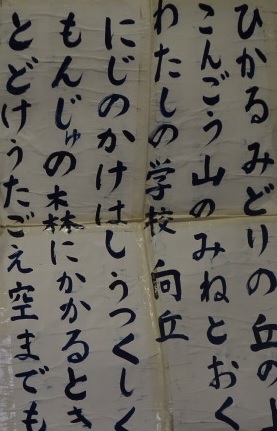 ひかるみどりの丘の
こんごう山のみねとおく
わたしの学校向丘
にじのかけはしうつくしく
もんじゅの森にかかるとき
とどけうたごえ空までも